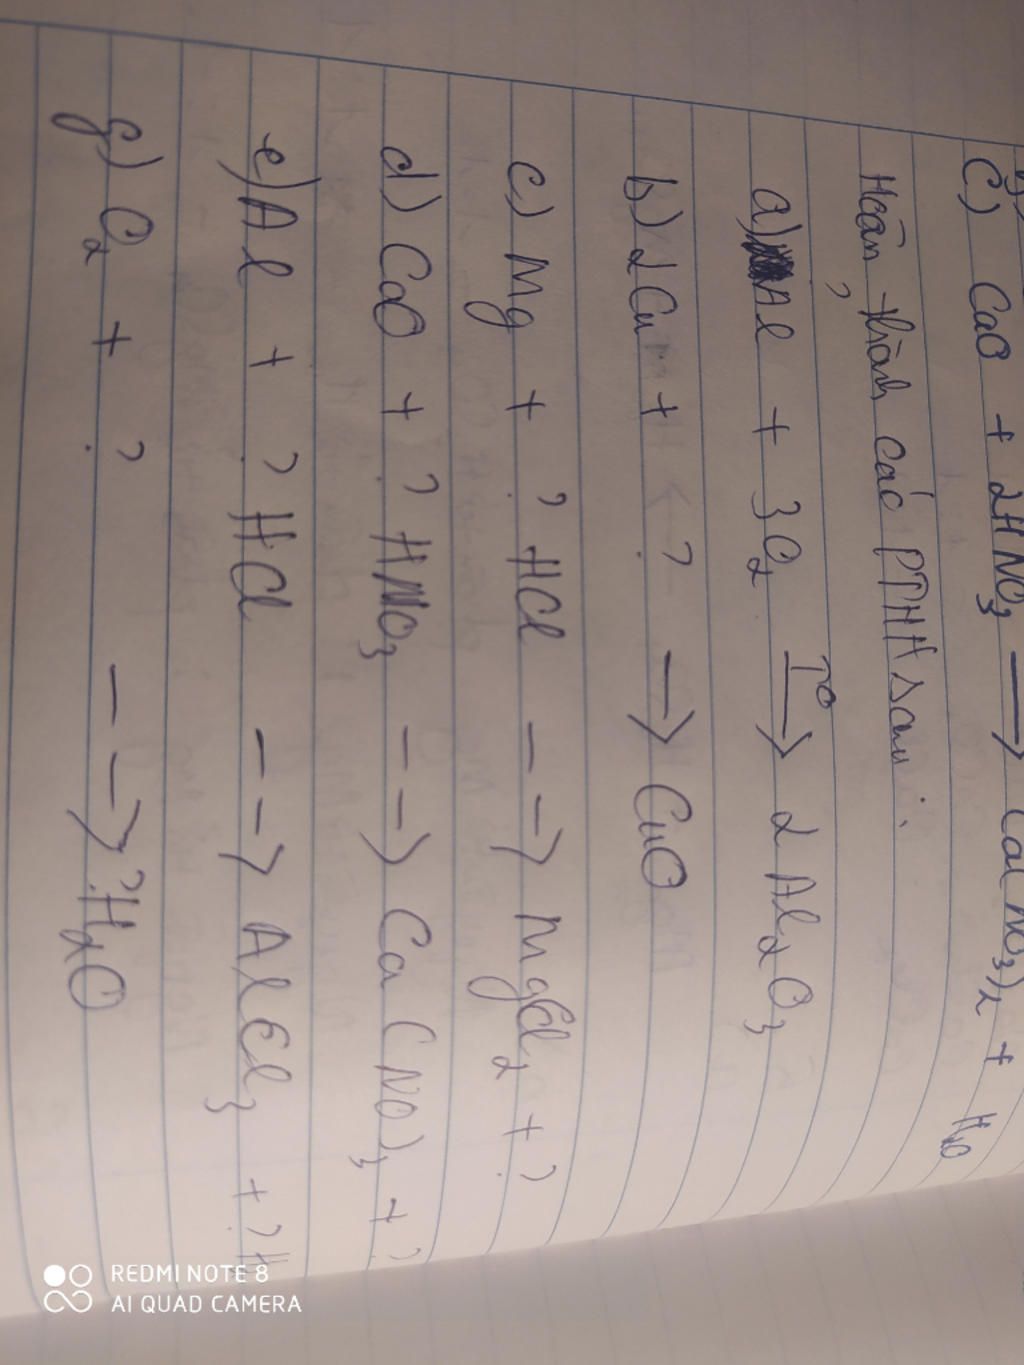 C) CaO + 2HNO3 → Ca(NO3)2 + H2O
Hoàn thành các PTHH sau:
a) Al + 3O2 T° → 2Al2O3
b) 2Cu + ? → CuO
c) Mg + ? HCl --> MgCl2 + ?
d) CaO + ? HNO3 --> Ca(NO)3 + ?
e) Al + ? HCl --> AlCl3 + ? H
g) O2 + ? --> ? H2O
REDMI NOTE 8
AI QUAD CAMERA